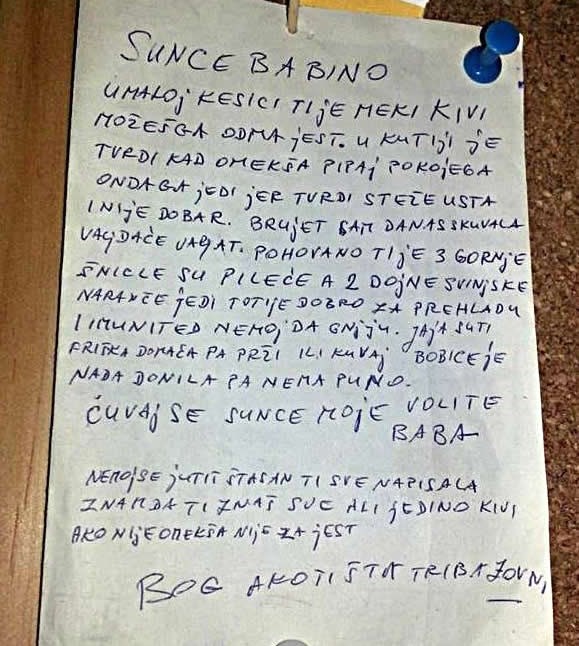 SUNCE BABINO
UMALOJ KESICI TIJE MEKI KIVI
MOŽEŠGA ODMA JEST. U KUTIJI JE
TVRDI KAD OMEKŠA PIPAJ POKOJEGA
ONDAGA JEDI JER TVRDI STEŽE USTA
I NIJE DOBAR. BRUJET SAM DANAS SKUVALA
VAJDAĆE VAJAT. POHOVANO TIJE 3 GORNJE
ŠNICLE SU PILEĆE A 2 DOJNE SVINJSKE
NARANČE JEDI TOTIJE DOBRO ZA PREHLADU
I IMUNITED NEMOJ DA GNJIJU. JAJA SUTI
FRIŠKA DOMAČA PA PRŽI ILI KUVAJ BOBICE JE
NADA DONILA PA NEMA PUNO.
ČUVAJ SE SUNCE MOJE VOLITE
BABA
NEMOJSE JUTIT ŠTASAN TI SVE NAPISALA
ZNAMDA TI ZNAŠ SVE ALI JEDINO KIVI
AKO NIJE OMEKŠA NIJE ZA JEST
BOG AKOTI ŠTA TRIBA ZOVNI